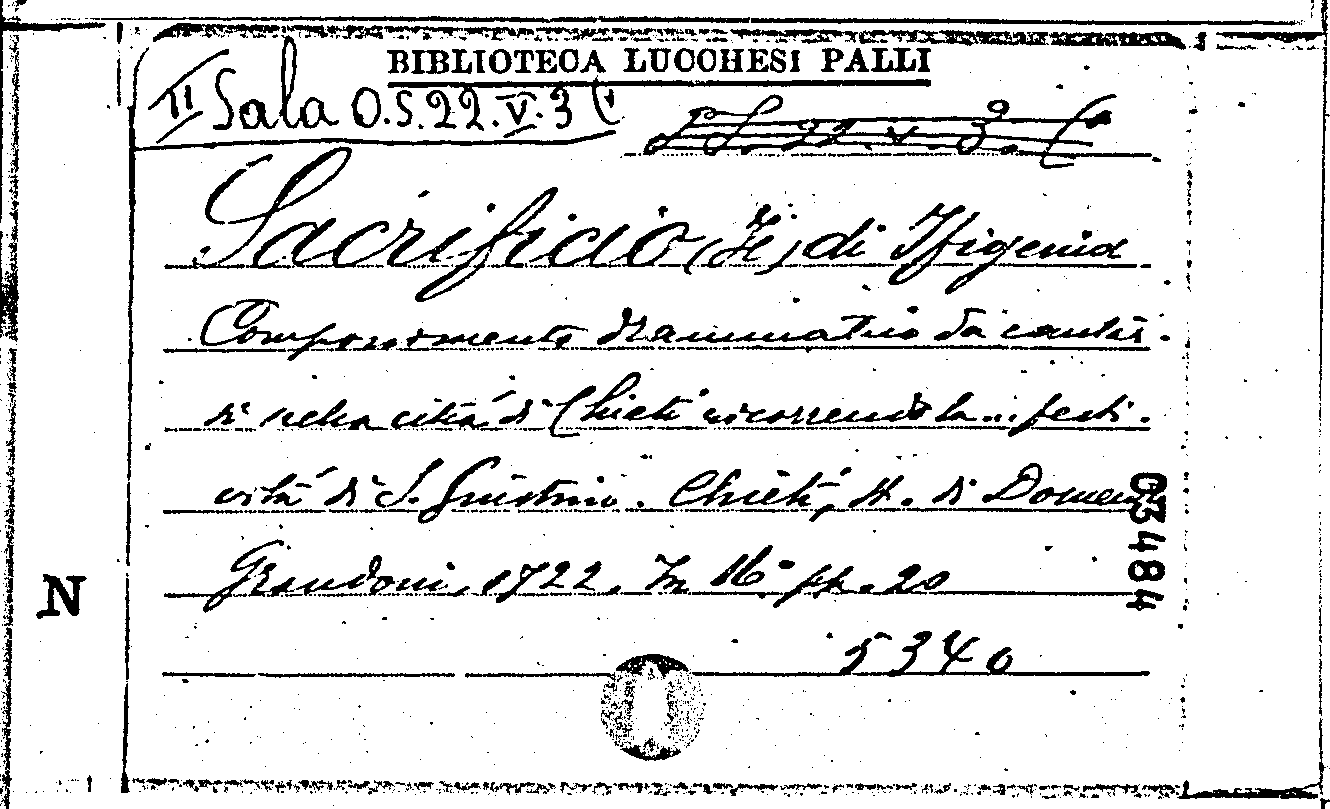 BIBLIOTECA LUCCHESI PALLI
II Sala O.S.22.V.3(1
22.V.3.(1
Sacrificio (Il) di Ifigenia
Componimento drammatico da cantar-
si nella città di Chieti ricorrendo la... festi-
vità di S. Giustino. Chieti, St. di Domen
Grandoni, 1722. In 16° pp. 20
5340
03484
N